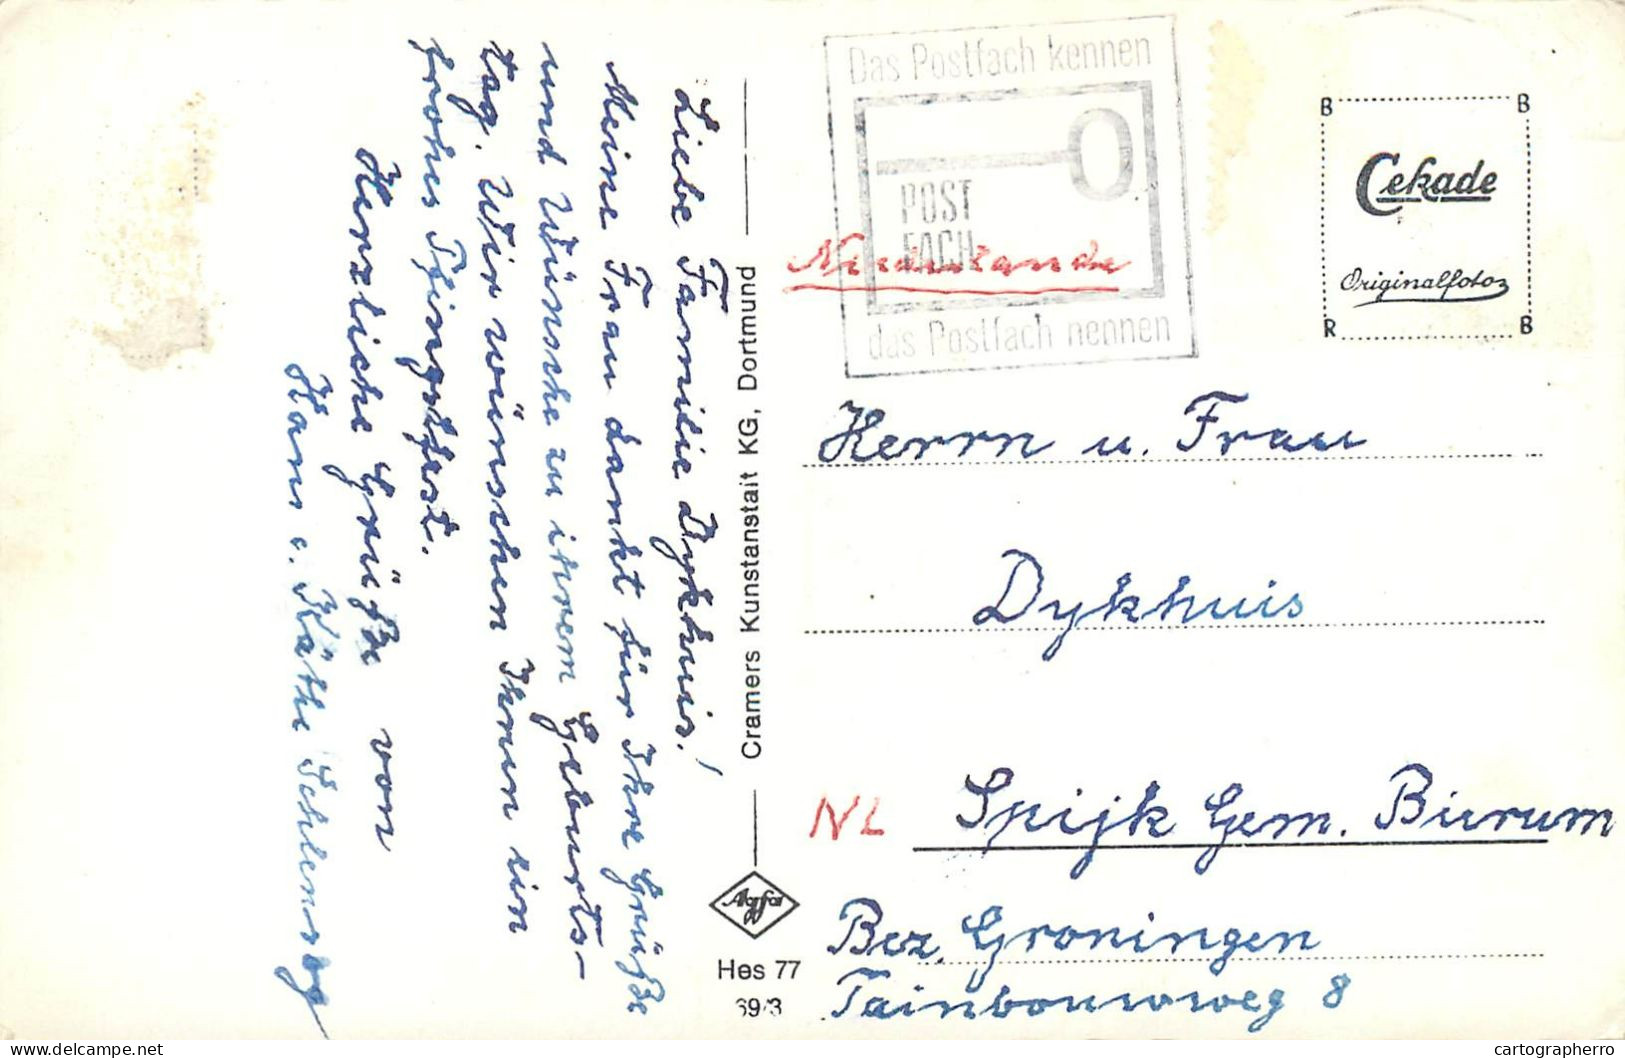 Liebe Familie Dykhuis!
Meine Frau dankt für Ihre Grüße
und Wünsche zu ihrem Geburts-
tag. Wir wünschen Ihnen ein
frohes Pfingstfest.
Herzliche Grüße von
Hans u. Käthe
Cramers Kunstanstalt KG, Dortmund
Agfa
Hes 77
69/3
Das Postfach kennen
POST
FACH
das Postfach nennen
Niederlande
B B
Cekade
Originalfoto
R B
Herrn u. Frau
Dykhuis
NL Spijk Gem. Bierum
Bez. Groningen
Tainbouwweg 8
delcampe.net
cartographerro